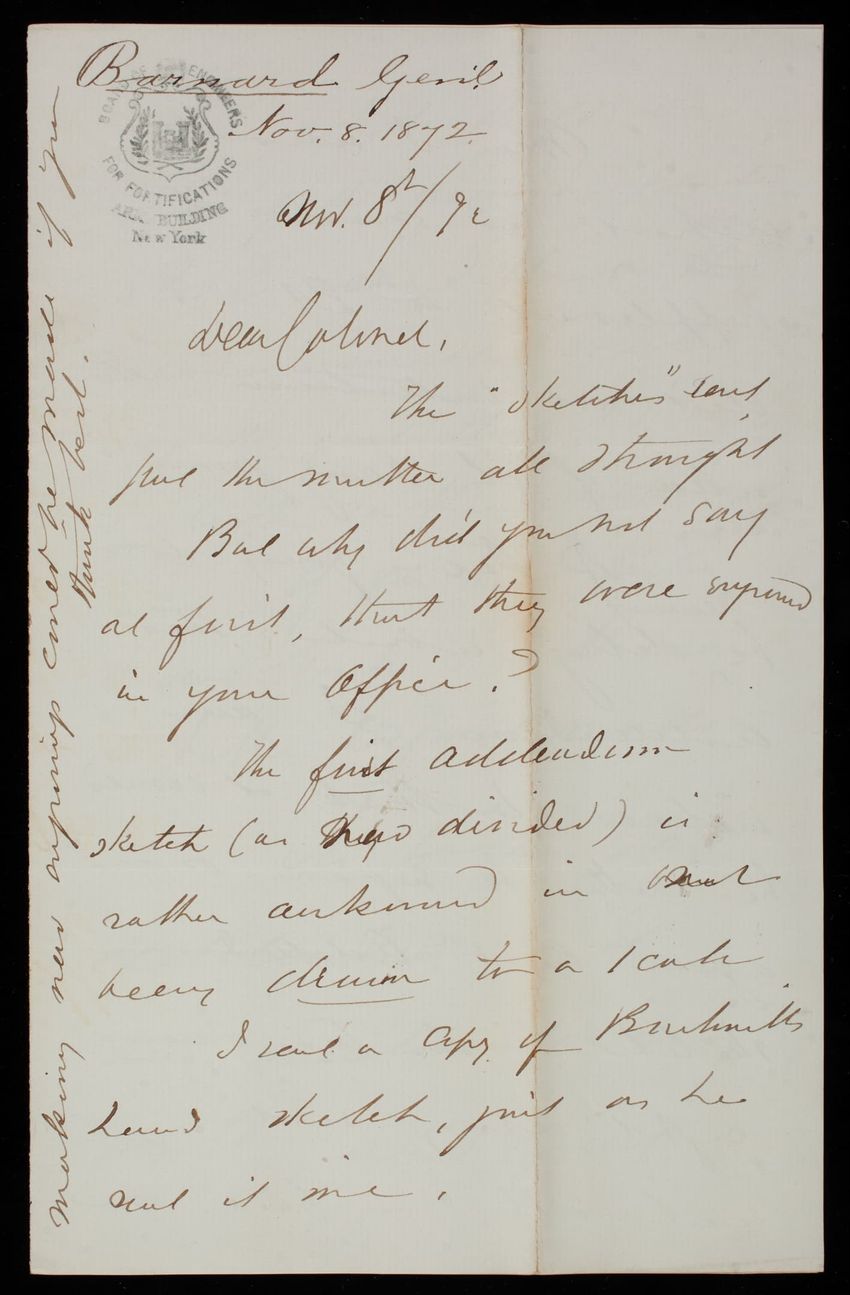 Barnard Gen'l
Nov. 8. 1872.
BOARD OF ENGINEERS
FOR FORTIFICATIONS
ARMY BUILDING
New York
Nov. 8th/72
Dear Colonel,
The "sketches" sent
put the matter all straight
But why did you not say
at first, that they were
in your Office?
The first addendum
sketch (as now divided) is
rather awkward in not
being drawn to a scale.
I sent a copy of Bushnell's
hand sketch, just as he
sent it me.
making new could be made if you
think best.